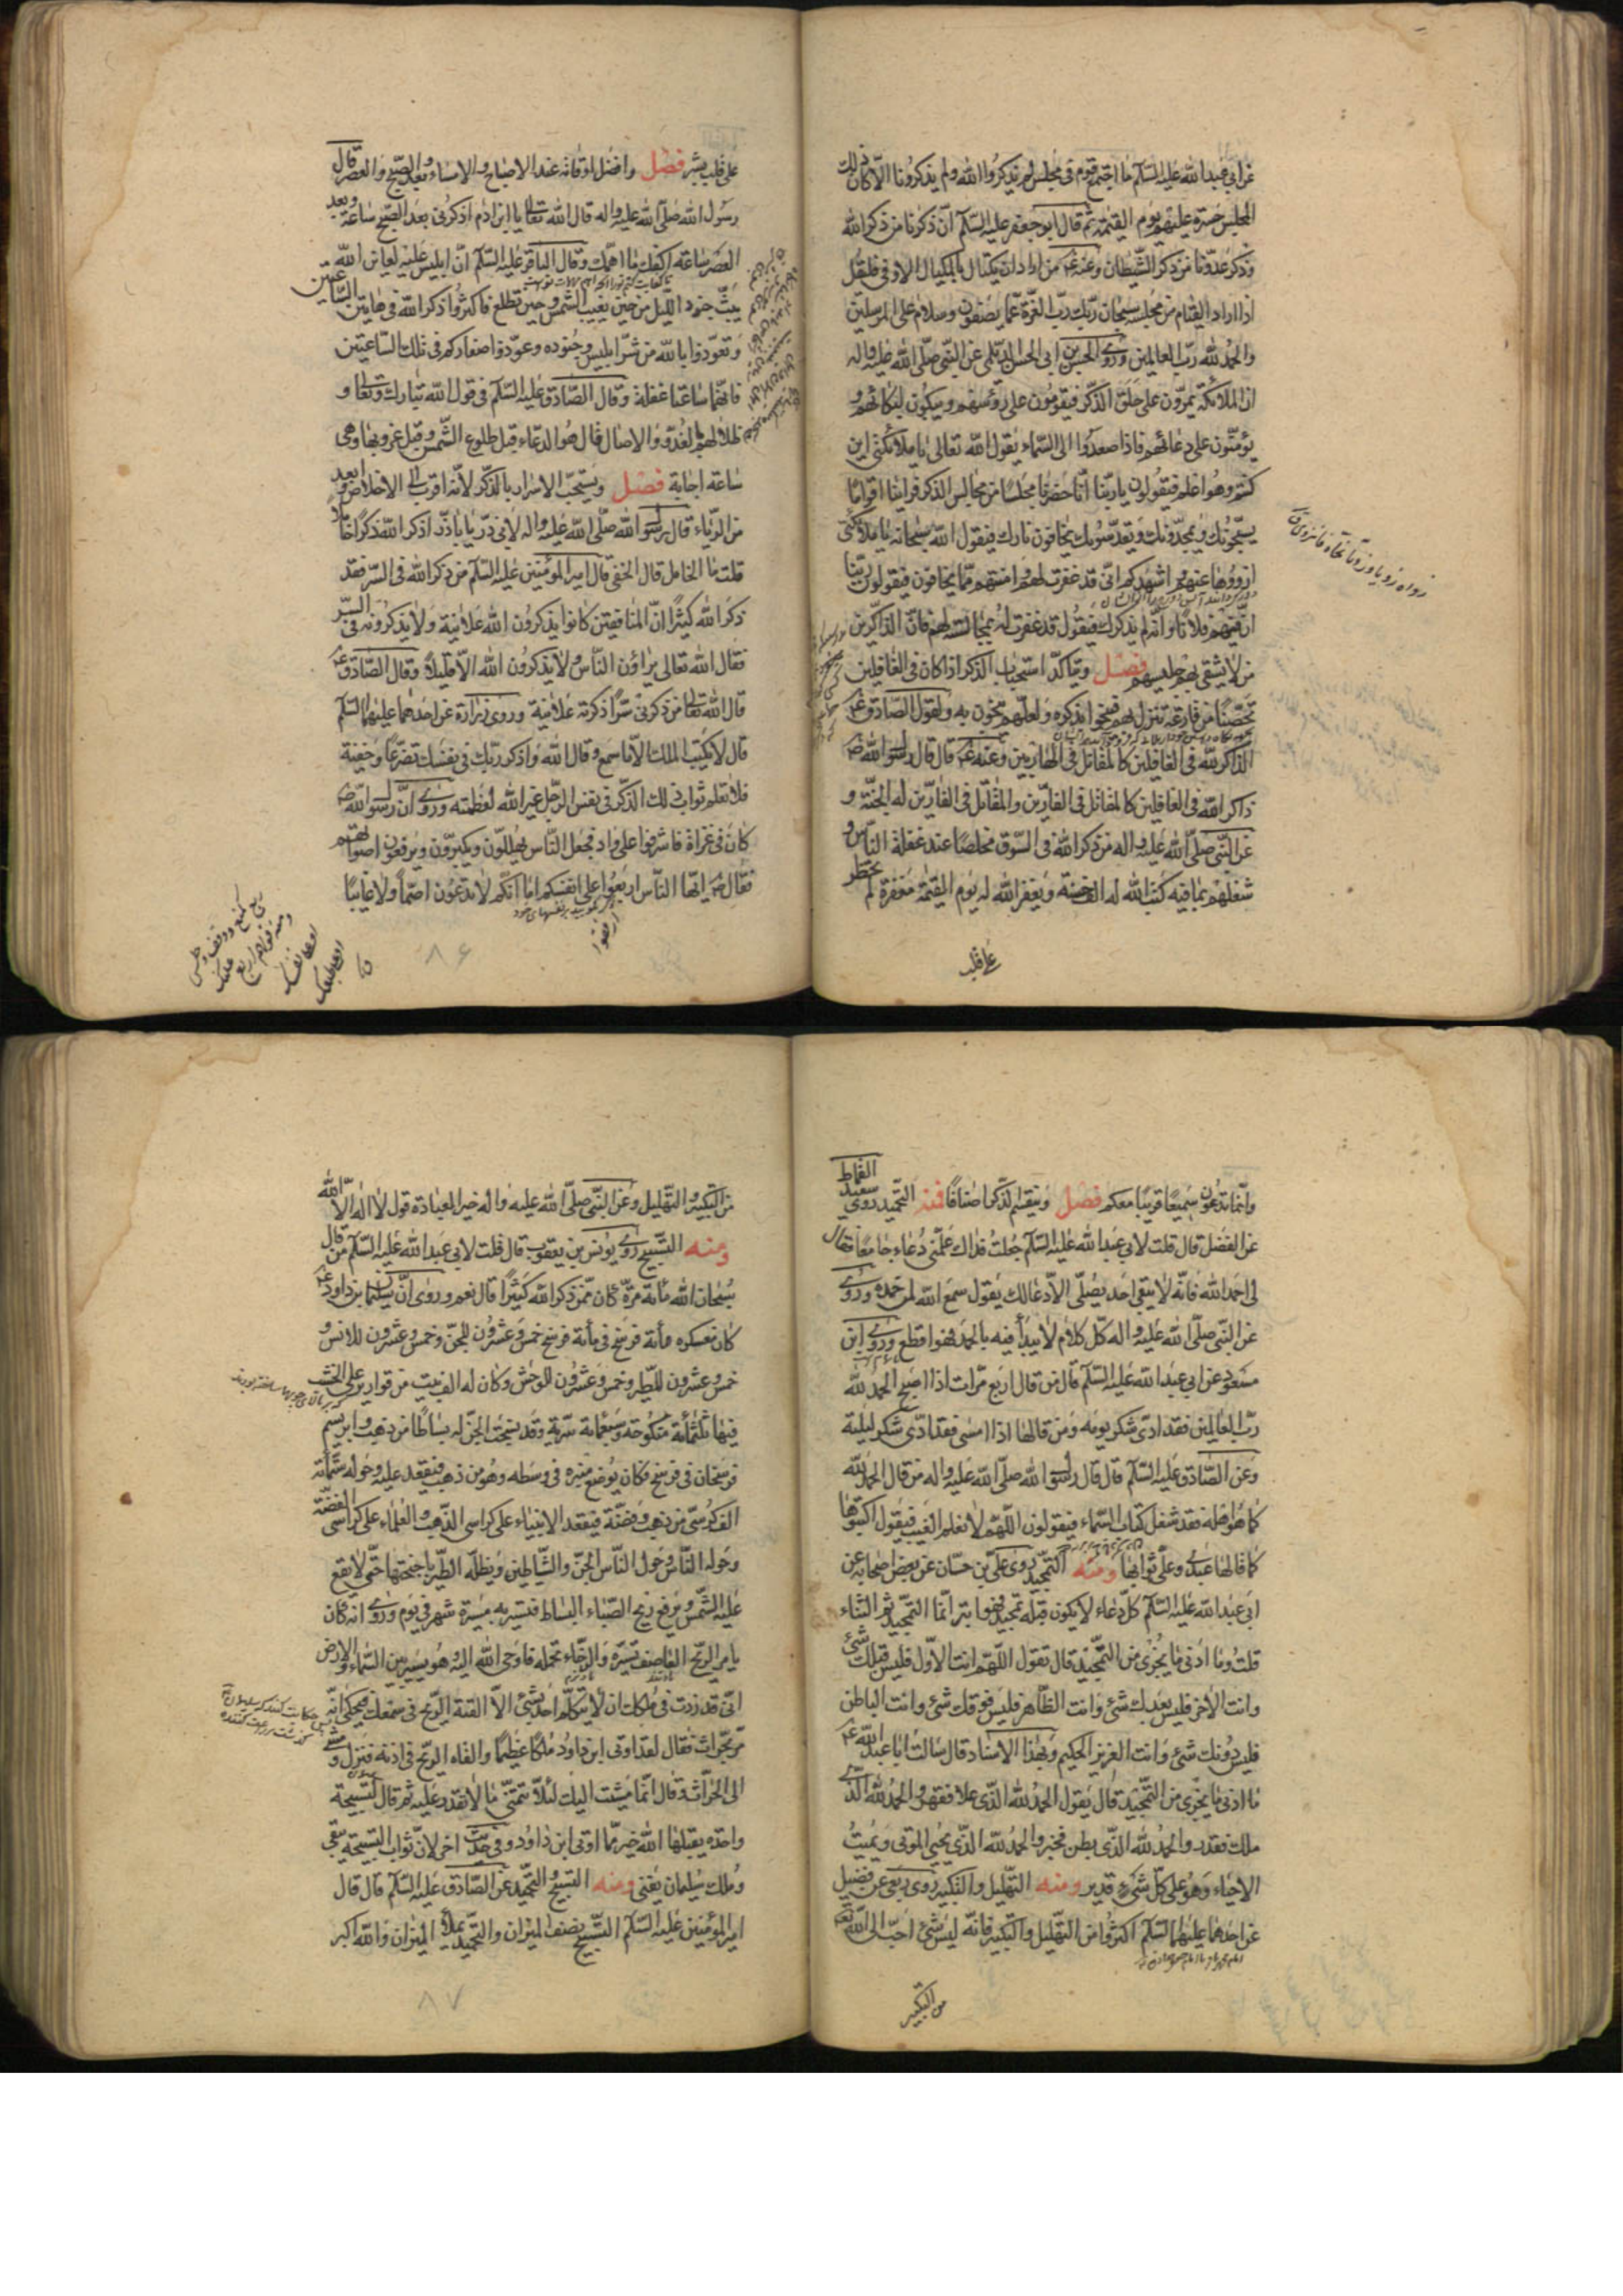 عن ابي عبد الله عليه السلام ما اجتمع قوم في مجلس لم يذكروا الله ولم يذكرونا الا كان ذلك
المجلس حسرة عليهم يوم القيمة ثم قال ابو جعفر عليه السلام ان ذكرنا من ذكر الله
وذكر عدونا من ذكر الشيطان وعنه ع من اراد ان يكتال بالمكيال الاوفى فليقل
اذا اراد القيام من مجلسه سبحان ربك رب العزة عما يصفون وسلام على المرسلين
والحمد لله رب العالمين وروى الحسين بن ابي الحسن الديلمي عن النبي صلى الله عليه واله
ان الملائكة يمرون على حلق الذكر فيقومون على رؤسهم ويبكون لبكائهم و
يؤمنون على دعائهم فاذا صعدوا الى السماء يقول الله تعالى يا ملائكتي اين
كنتم وهو اعلم فيقولون يا ربنا انا حضرنا مجلسا من مجالس الذكر فراينا اقواما
يسبحونك ويمجدونك ويقدسونك يخافون نارك فيقول الله سبحانه يا ملائكتي
ازووها عنهم واشهدكم اني قد غفرت لهم وامنتهم مما يخافون فيقولون ربنا
ان فيهم فلانا وانه لم يذكرك فيقول قد غفرت له بمجالسته لهم فان الذاكرين
من لا يشقى بهم جليسهم فصل ويتاكد استحباب الذكر اذا كان في الغافلين
تحصنا من قارعة تنزل بهم فينجوا بذكره ولعلهم ينجون به ولقول الصادق ع
الذاكر لله في الغافلين كالمقاتل في الهاربين وعنه ع قال قال رسول الله ص
ذاكر الله في الغافلين كالمقاتل في الفارين والمقاتل في الفارين له الجنة و
عن النبي صلى الله عليه واله من ذكر الله في السوق مخلصا عند غفلة الناس و
شغلهم بما فيه كتب الله له الف حسنة ويغفر الله له يوم القيمة مغفرة لم يخطر
على قلب
على قلب بشر فصل وافضل اوقاته عند الاصباح والامساء وبعد الصبح والعصر قال
رسول الله صلى الله عليه واله قال الله تعالى يا ابن ادم اذكرني بعد الصبح ساعة وبعد
العصر ساعة اكفك ما اهمك وقال الباقر عليه السلام ان ابليس عليه لعاين الله
يبث جنود الليل من حين يغيب الشمس وحين تطلع فاكثروا ذكر الله في هاتين الساعتين
وتعوذوا بالله من شر ابليس وجنوده وعوذوا صغاركم في تلك الساعتين
فانهما ساعتا غفلة وقال الصادق عليه السلام في قول الله تبارك وتعالى و
ظلالهم بالغدو والاصال قال هو الدعاء قبل طلوع الشمس وقبل غروبها وهي
ساعة اجابة فصل ويستحب الاسرار بالذكر لانه اقرب الى الاخلاص وابعد
من الرياء قال رسول الله صلى الله عليه واله لابي ذر يا با ذر اذكر الله ذكرا خاملا
قلت ما الخامل قال الخفي قال امير المؤمنين عليه السلام من ذكر الله في السر فقد
ذكر الله كثيرا ان المنافقين كانوا يذكرون الله علانية ولا يذكرونه في السر
فقال الله تعالى يراؤن الناس ولا يذكرون الله الا قليلا وقال الصادق ع
قال الله تعالى من ذكرني سرا ذكرته علانية وروى زرارة عن احدهما عليهما السلام
قال لا يكتب الملك الا ما سمع وقال الله واذكر ربك في نفسك تضرعا وخيفة
فلا تعلم ثواب ذلك الذكر في نفس الرجل غير الله لعظمته وروى ان رسول الله ص
كان في غزاة فاشرفوا على واد فجعل الناس يهللون ويكبرون ويرفعون اصواتهم
فقال ص ايها الناس اربعوا على انفسكم اما انكم لا تدعون اصما ولا غائبا
ارفقوا
٨٦
وانما تدعون سميعا قريبا معكم فصل وينقسم الذكر اصنافا فمنه التحميد روى سعيد القماط
عن الفضل قال قلت لابي عبد الله عليه السلام جعلت فداك علمني دعاء جامعا فقال
لي احمد الله فانه لا يبقى احد يصلي الا دعا لك يقول سمع الله لمن حمده وروى
عن النبي صلى الله عليه واله كل كلام لا يبدأ فيه بالحمد فهو اقطع وروى ابن
مسعود عن ابي عبد الله عليه السلام قال من قال اربع مرات اذا اصبح الحمد لله
رب العالمين فقد ادى شكر يومه ومن قالها اذا امسى فقد ادى شكر ليلته
وعن الصادق عليه السلام قال قال رسول الله صلى الله عليه واله من قال الحمد لله
كما هو اهله فقد شغل كتاب السماء فيقولون اللهم لا نعلم الغيب فيقول اكتبوها
كما قالها عبدي وعلي ثوابها ومنه التمجيد روى علي بن حسان عن بعض اصحابه عن
ابي عبد الله عليه السلام كل دعاء لا يكون قبله تمجيد فهو ابتر انما التمجيد ثم الثناء
قلت وما ادنى ما يجزى من التمجيد قال تقول اللهم انت الاول فليس قبلك شئ
وانت الاخر فليس بعدك شئ وانت الظاهر فليس فوقك شئ وانت الباطن
فليس دونك شئ وانت العزيز الحكيم وبهذا الاسناد قال سالت ابا عبد الله ع
ما ادنى ما يجزى من التمجيد قال يقول الحمد لله الذي علا فقهر والحمد لله الذي
ملك فقدر والحمد لله الذي بطن فخبر والحمد لله الذي يحيي الموتى ويميت
الاحياء وهو على كل شئ قدير ومنه التهليل والتكبير روى ربعي عن فضيل
عن احدهما عليهما السلام اكثروا من التهليل والتكبير فانه ليس شئ احب الى الله تعالى
من التكبير
من التكبير والتهليل وعن النبي صلى الله عليه واله خير العبادة قول لا اله الا الله
ومنه التسبيح روى يونس بن يعقوب قال قلت لابي عبد الله عليه السلام من قال
سبحان الله مائة مرة كان ممن ذكر الله كثيرا قال نعم وروى ان سليمان بن داود ع
كان معسكره مائة فرسخ في مائة فرسخ خمس وعشرون للجن وخمس وعشرون للانس و
خمس وعشرون للطير وخمس وعشرون للوحش وكان له الف بيت من قوارير على الخشب
فيها ثلثمائة منكوحة وسبعمائة سرية وقد نسجت الجن له بساطا من ذهب وابريسم
فرسخان في فرسخ فكان يوضع منبره في وسطه وهو من ذهب فيقعد عليه وحوله ستمائة
الف كرسي من ذهب وفضة فيقعد الانبياء على كراسي الذهب والعلماء على كراسي الفضة
وحوله الناس وحول الناس الجن والشياطين وتظله الطير باجنحتها حتى لا يقع
عليه الشمس ويرفع ريح الصباء البساط فتسير به مسيرة شهر في يوم وروى انه كان
يامر الريح العاصف تسيره والرخاء تحمله فاوحى الله اليه وهو يسير بين السماء والارض
اني قد زدت في ملكك ان لا يتكلم احد بشئ الا القته الريح في سمعك فيحكى انه
مر بحراث فقال لقد اوتى ابن داود ملكا عظيما والقاه الريح في اذنه فنزل ومشى
الى الحراث وقال انما مشيت اليك لئلا تتمنى ما لا تقدر عليه ثم قال لتسبيحة
واحدة يقبلها الله خير مما اوتى ابن داود وفي حديث اخر لان ثواب التسبيحة يبقى
وملك سليمان يفنى ومنه التسبيح والتحميد عن الصادق عليه السلام قال قال
امير المؤمنين عليه السلام التسبيح نصف الميزان والتحميد يملأ الميزان والله اكبر
٨٧